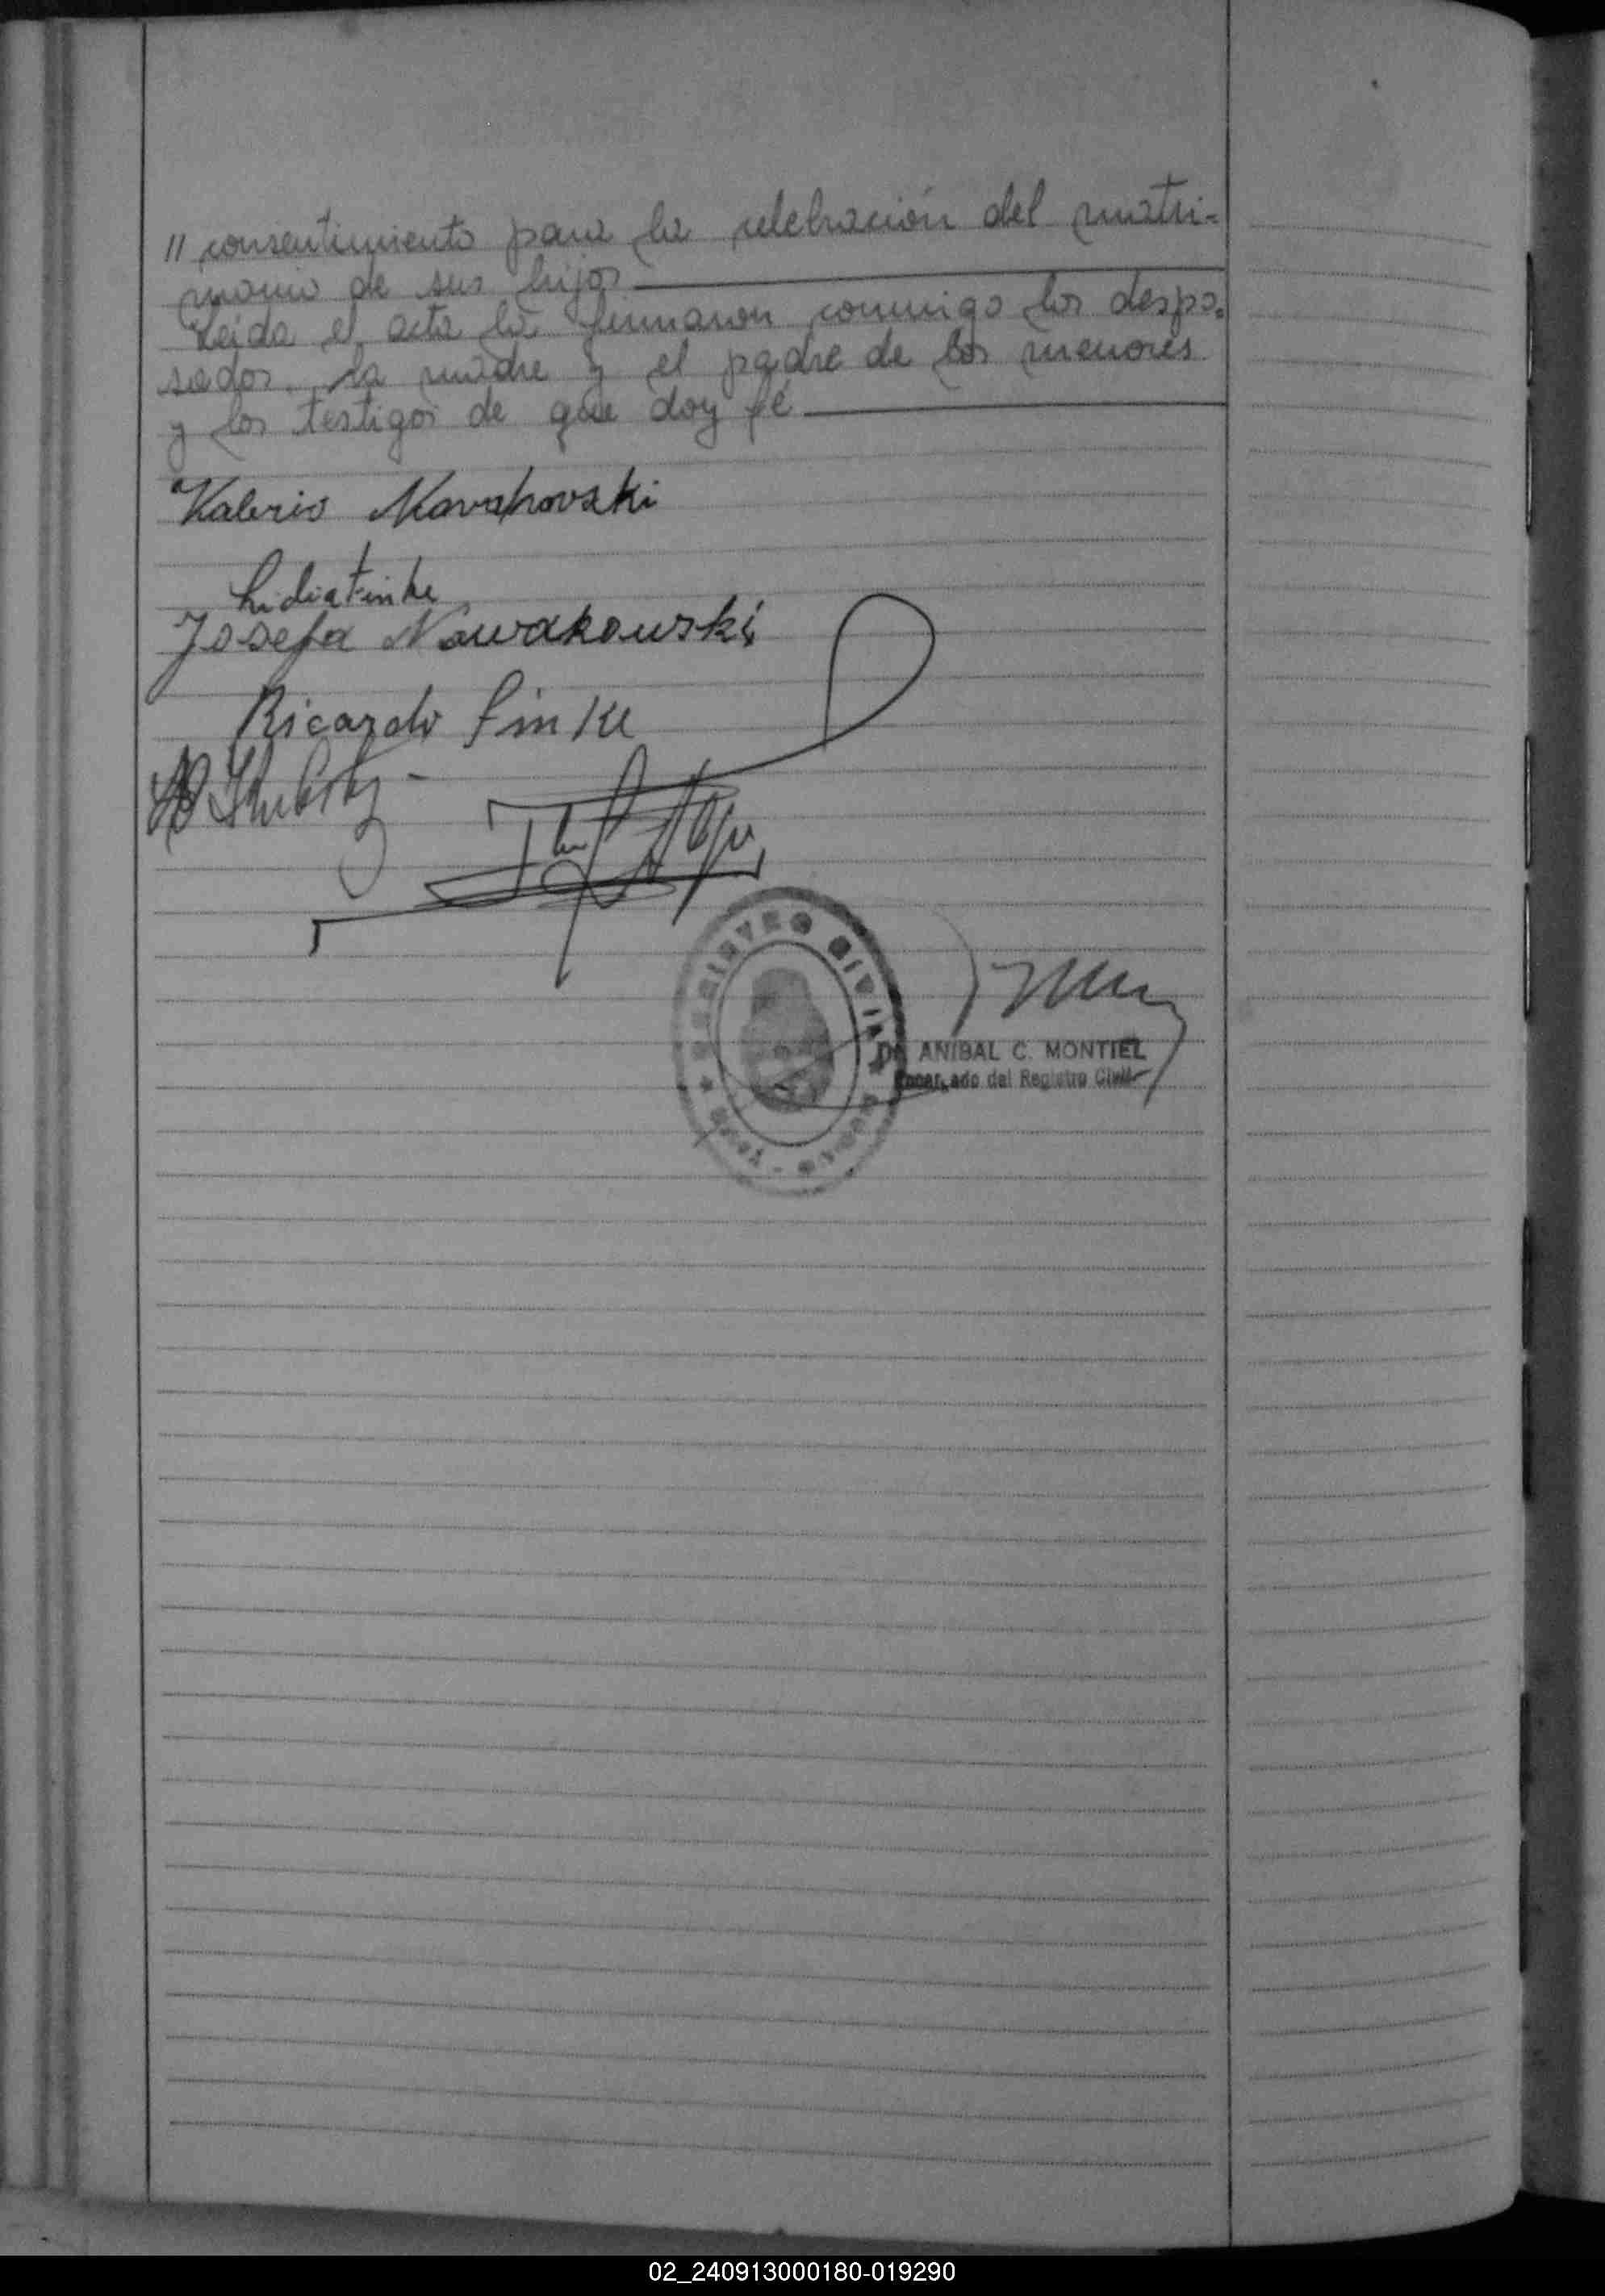 // consentimiento para la celebración del matri-
monio de sus hijos
Leida el acta la firmaron conmigo los despo-
sados, la madre y el padre de los menores
y los testigos de que doy fé
Valerio Novakovski
Lidia Finke
Josefa Nowakowski
Ricardo Finke
REGISTRO CIVIL
Dr ANIBAL C. MONTIEL
Encargado del Registro Civil
02_240913000180-019290